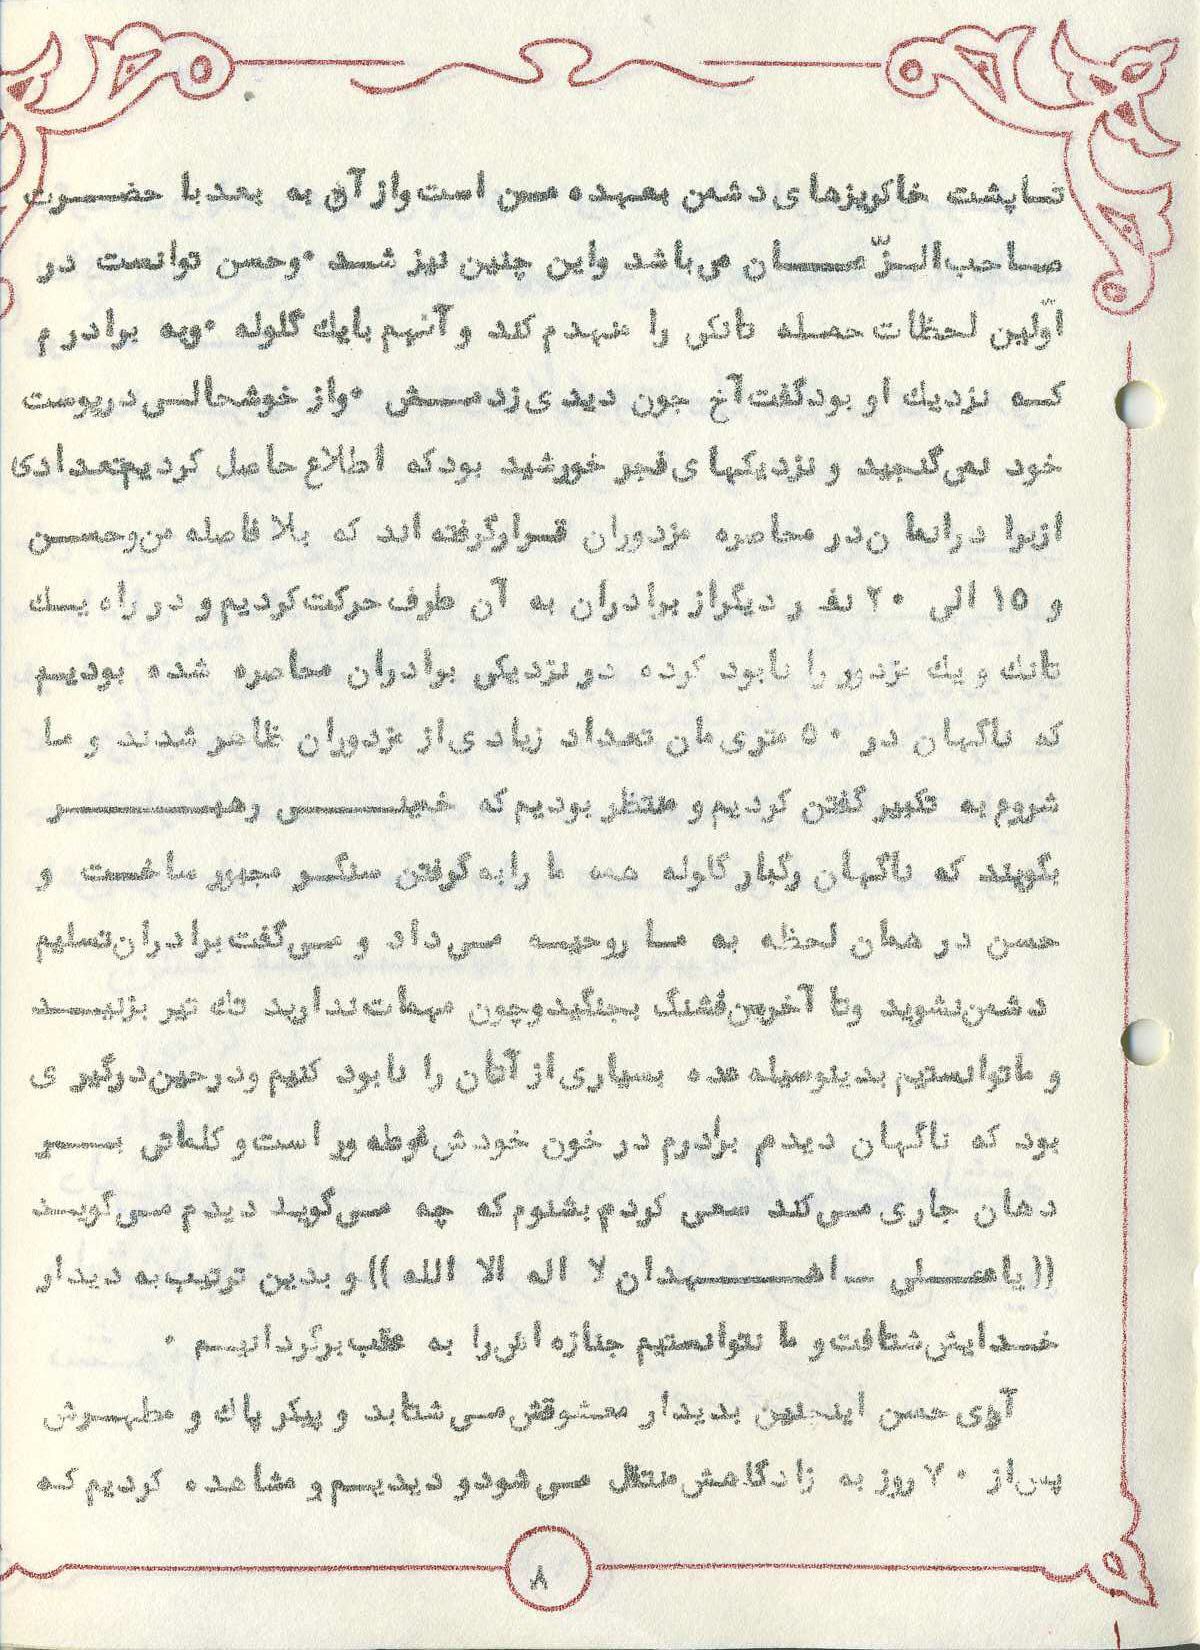 تساپشت خاکریزهای دشمن بعهده مسن است واز آن به بعد با حضسرت
صاحب السزّمان می‌باشد واین چنین نیز شد ٠وحسن توانست در
اوّلین لحظات حمسله تانکی را منهدم کند و آنهم بایك گلوله ٠وبه برادرم
کسه نزدیك او بود گفت آخ جون دیدی زدمسش ٠واز خوشحالسی در پوست
خود نمی‌گنجید و نزدیکهای فجر خورشید بود که اطلاع حاصل کردیم تعدادی
از برادرانمان در محاصره مزدوران قسرار گرفته اند که بلافاصله من وحسسن
و ١٥ الی ٢٠ نفر دیگر از برادران به آن طرف حرکت کردیم و در راه یسك
تانك و یك مزدور را نابود کرده در نزدیکی برادران محاصره شده بودیم
که ناگهان در ٥٠ متری مان تعداد زیادی از مزدوران ظاهر شدند و ما
شروع به تکبیر گفتن کردیم و منتظر بودیم که خمینسی رهبسر
بگویند که ناگهان رگبار گلوله همه ما را به گرفتن سنگسر مجبور ساخست و
حسن در همان لحظه به مسا روحیسه مسی داد و مسی گفت برادران تسلیم
دشمن نشوید وتا آخرین فشنگ بجنگید وچون مهمات ندارید تك تیر بزنیسد
و ما توانستیم بدینوسیله عده بسیاری از آنان را نابود کنیم ودر حین درگیری
بود که ناگهان دیدم برادرم در خون خودش غوطه ور است و کلماتی بسر
دهان جاری می‌کند سعی کردم بشنوم که چه مسی گوید دیدم مسی گویسد
((یاعسلی ـ اشسهدان لا اله الا الله )) و بدین ترتیب به دیدار
خسدایش شتافت و ما نتوانستیم جنازه اش را به عقب برگردانیسم ٠
آری حسن اینچنین بدیدار معشوقش مسی شتابد و پیکر پاك و مطهسرش
پس از ٧٠ روز به زادگاهش منتقل مسی شود و دیدیسم و مشاهده کردیم کسه
٨